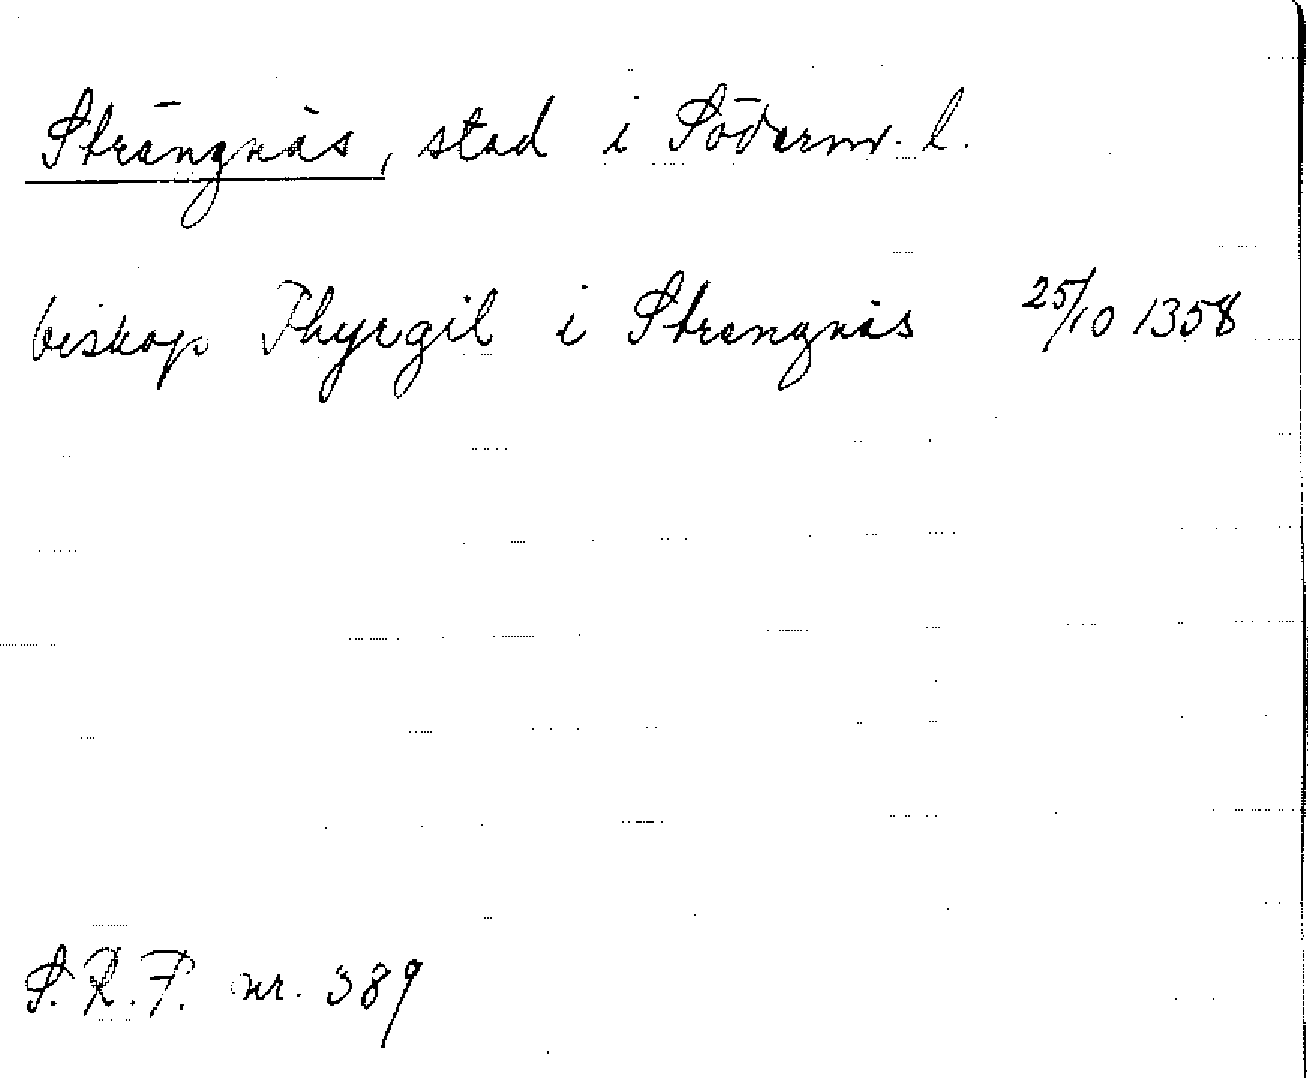 Strängnäs, stad i Söderm. l.
biskop Thyrgil i Strengnäs 25/10 1358
S.R.P. nr. 389